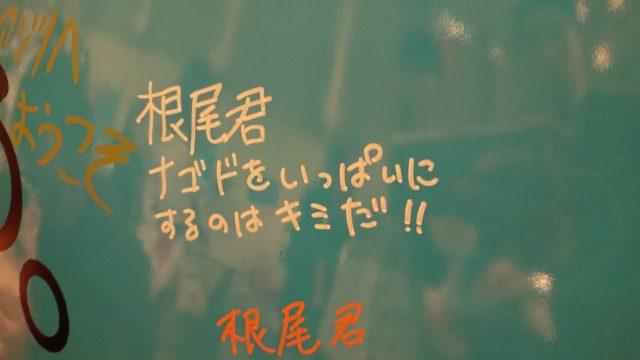 ようこそ
根尾君
ナゴドをいっぱいに
するのはキミだ!!
根尾君